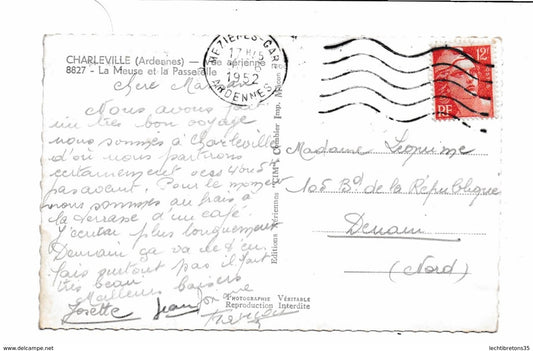 CHARLEVILLE (Ardennes) — Vue aérienne
8827 - La Meuse et la Passerelle
MEZIERES-GARE
1952
ARDENNES
12F
RF
Chère
Nous avons
un très bon voyage
nous sommes à Charleville
d'où nous partirons
certainement vers 4 ou 5h
pas avant. Pour le moment
nous sommes au frais à
la terrasse d'un café.
J'écrirai plus longuement
Demain ça va
fais surtout pas il fait
très beau
Meilleurs baisers
Josette Jean
Editions Aériennes "CIM" Combier Imp. Macon
Madame
105 Bd de la République
Denain
(Nord)
PHOTOGRAPHIE VÉRITABLE
Reproduction Interdite
www.delcampe.net
lechtibretons35